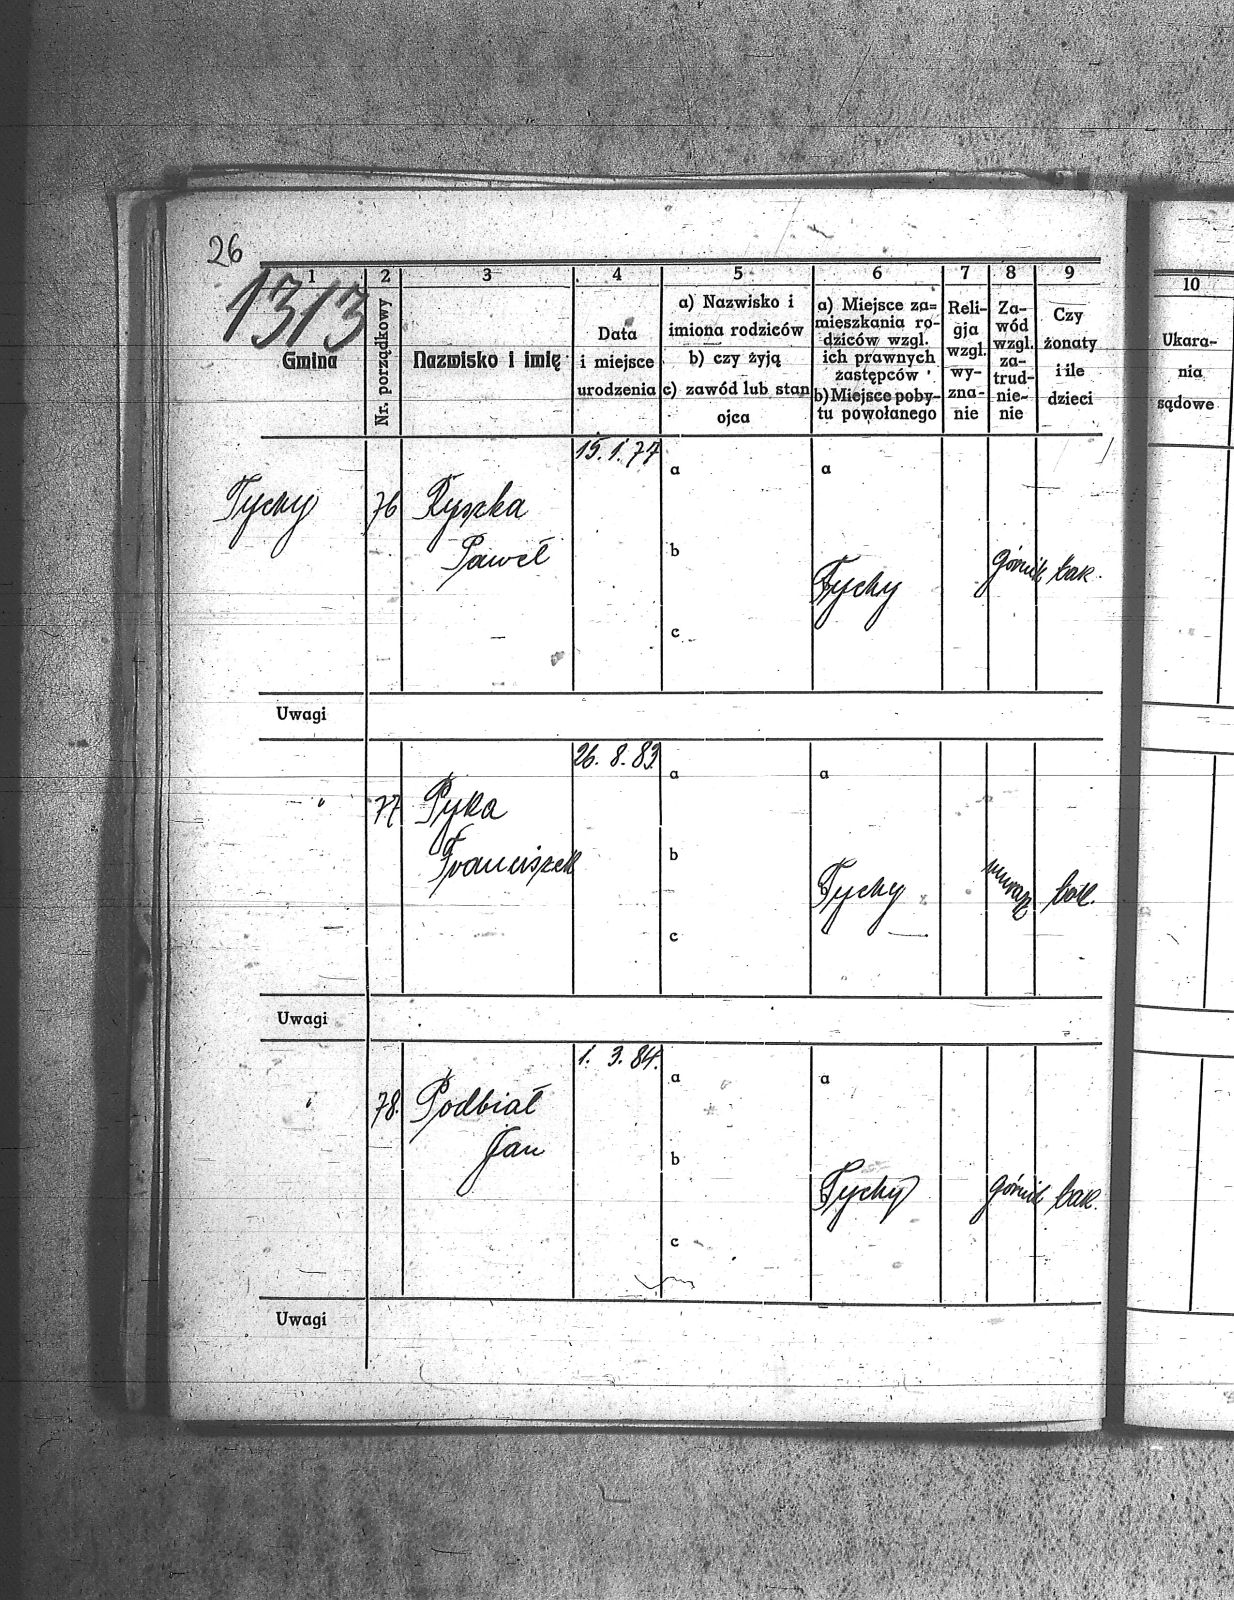 26
1313
1 2 3 4 5 6 7 8 9
Gmina
Nr. porządkowy
Nazwisko i imię
Data
i miejsce
urodzenia
a) Nazwisko i
imiona rodziców
b) czy żyją
c) zawód lub stan
ojca
a) Miejsce za=
mieszkania ro-
dziców wzgl.
ich prawnych
zastępców
b) Miejsce poby-
tu powołanego
Reli-
gja
wzgl.
wy-
zna-
nie
Za-
wód
wzgl.
za-
trud-
nie-
nie
Czy
żonaty
i ile
dzieci
10
Ukara-
nia
sądowe
15. 1. 77
a a
Tychy 76 Ryszka
Paweł
b
Tychy górnik tak.
c
Uwagi
26. 8. 83
a a
" 77 Pyka
Franciszek
b
Tychy murarz tak.
c
Uwagi
1. 3. 84.
a a
" 78. Podbiał
Jan
b
Tychy górnik tak.
c
Uwagi